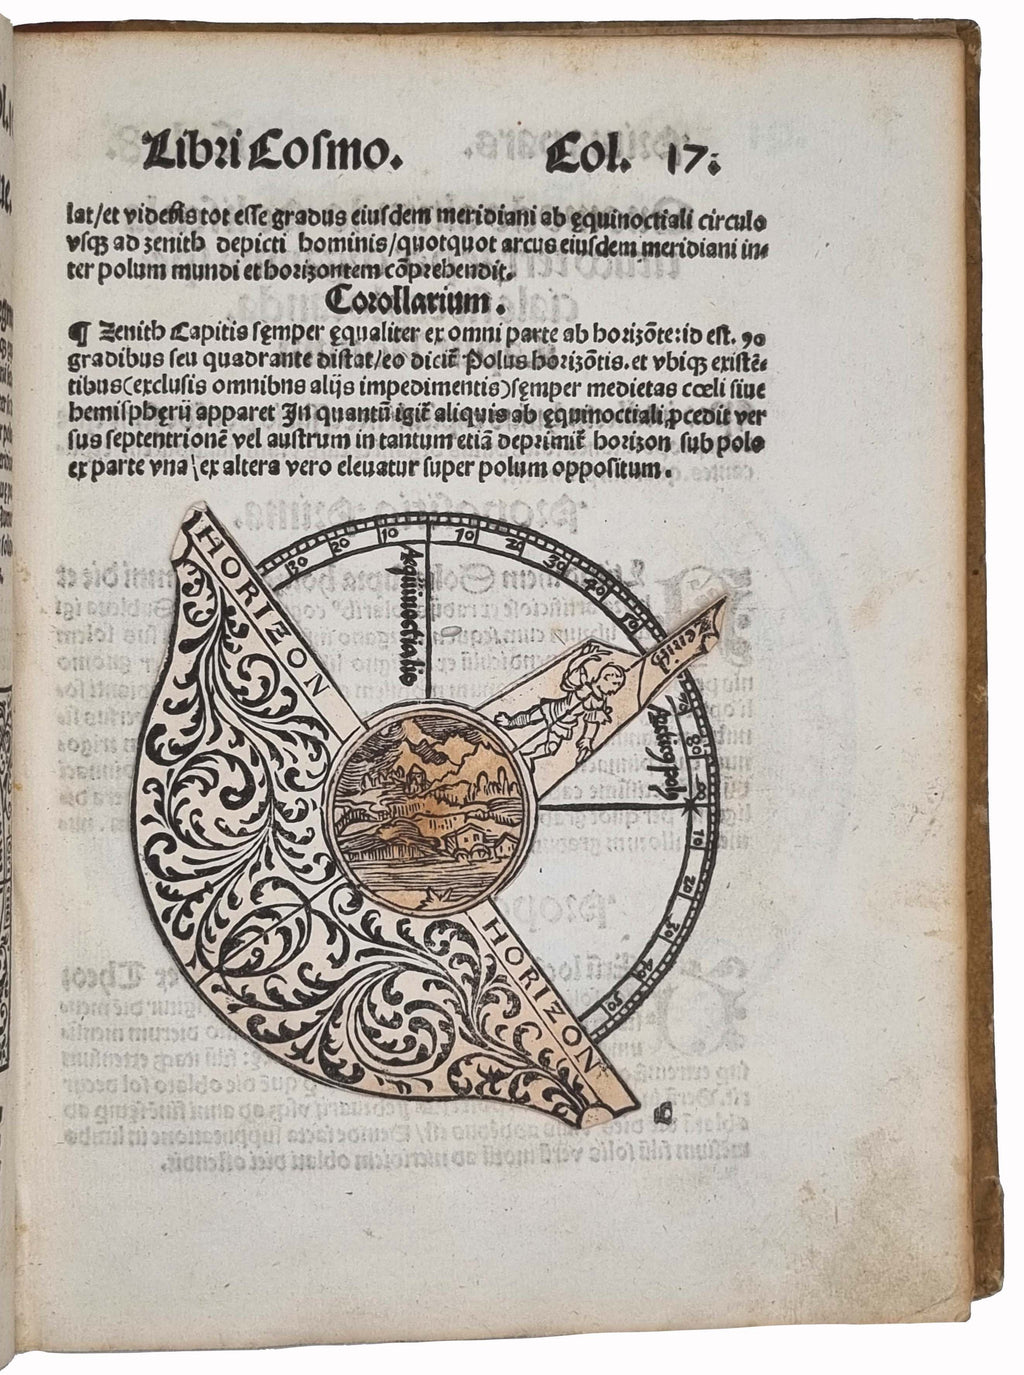 Libri Cosmo. Col. 17.
lat/et videbis tot esse gradus eiusdem meridiani ab ęquinoctiali circulo
vsq̨ ad zenith depicti hominis/quotquot arcus eiusdem meridiani in⸗
ter polum mundi et horizontem cōprehendit.
Corollarium.
¶ Zenith Capitis sęmper ęqualiter ex omni parte ab horizōte:id est. 90
gradibus seu quadrante distat/eo dicit̄ Polus horizōtis.et vbiq̨ existē⸗
tibus(exclusis omnibus alijs impedimentis)sęmper medietas cœli siue
hemisphęrij apparet In quantū igit̄ aliquis ab ęquinoctiali ꝓcedit ver
sus septentrionē vel austrum in tantum etiā deprimit̄ horizon sub polo
ex parte vna \ ex altera vero eleuatur super polum oppositum.
30 20 10 10 20 30 40 50
HORIZON
Aequinoctialis
Zenith
80
Antic⁹ pol⁹
10
20
30
40
50
HORIZON